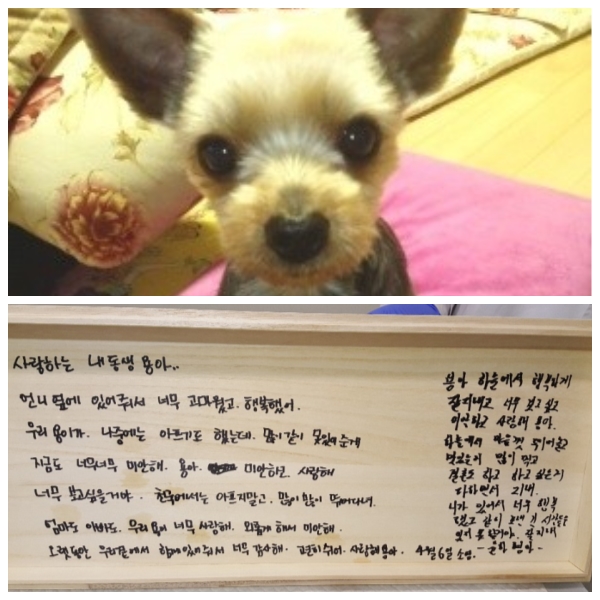 사랑하는 내동생 용아..
언니 옆에 있어줘서 너무 고마웠고. 행복했어.
우리 용이가. 나중에는 아프기도 했는데. 많이 같이 못있어준게
지금도 너무너무 미안해. 용아. 미안하고. 사랑해
너무 보고싶을거야. 천국에서는 아프지말고. 많이 많이 뛰어다녀.
엄마도 아빠도. 우리용이 너무 사랑해. 외롭게 해서 미안해.
오랫동안 우리곁에서 함께 있어줘서 너무 감사해. 고편히 쉬어. 사랑해 용아. 4월 6일
용아 하늘에서 행복하게
잘지내고 너무 보고 싶고
미안하고 사랑해 용아.
하늘에서 마음껏 뛰어놀고
맛있는거 많이 먹고
결혼도 하고 하고 싶은거
다하면서 지내.
니가 있어서 너무 행복
했고 같이 보낸 건 시간들
잊어 잘지내